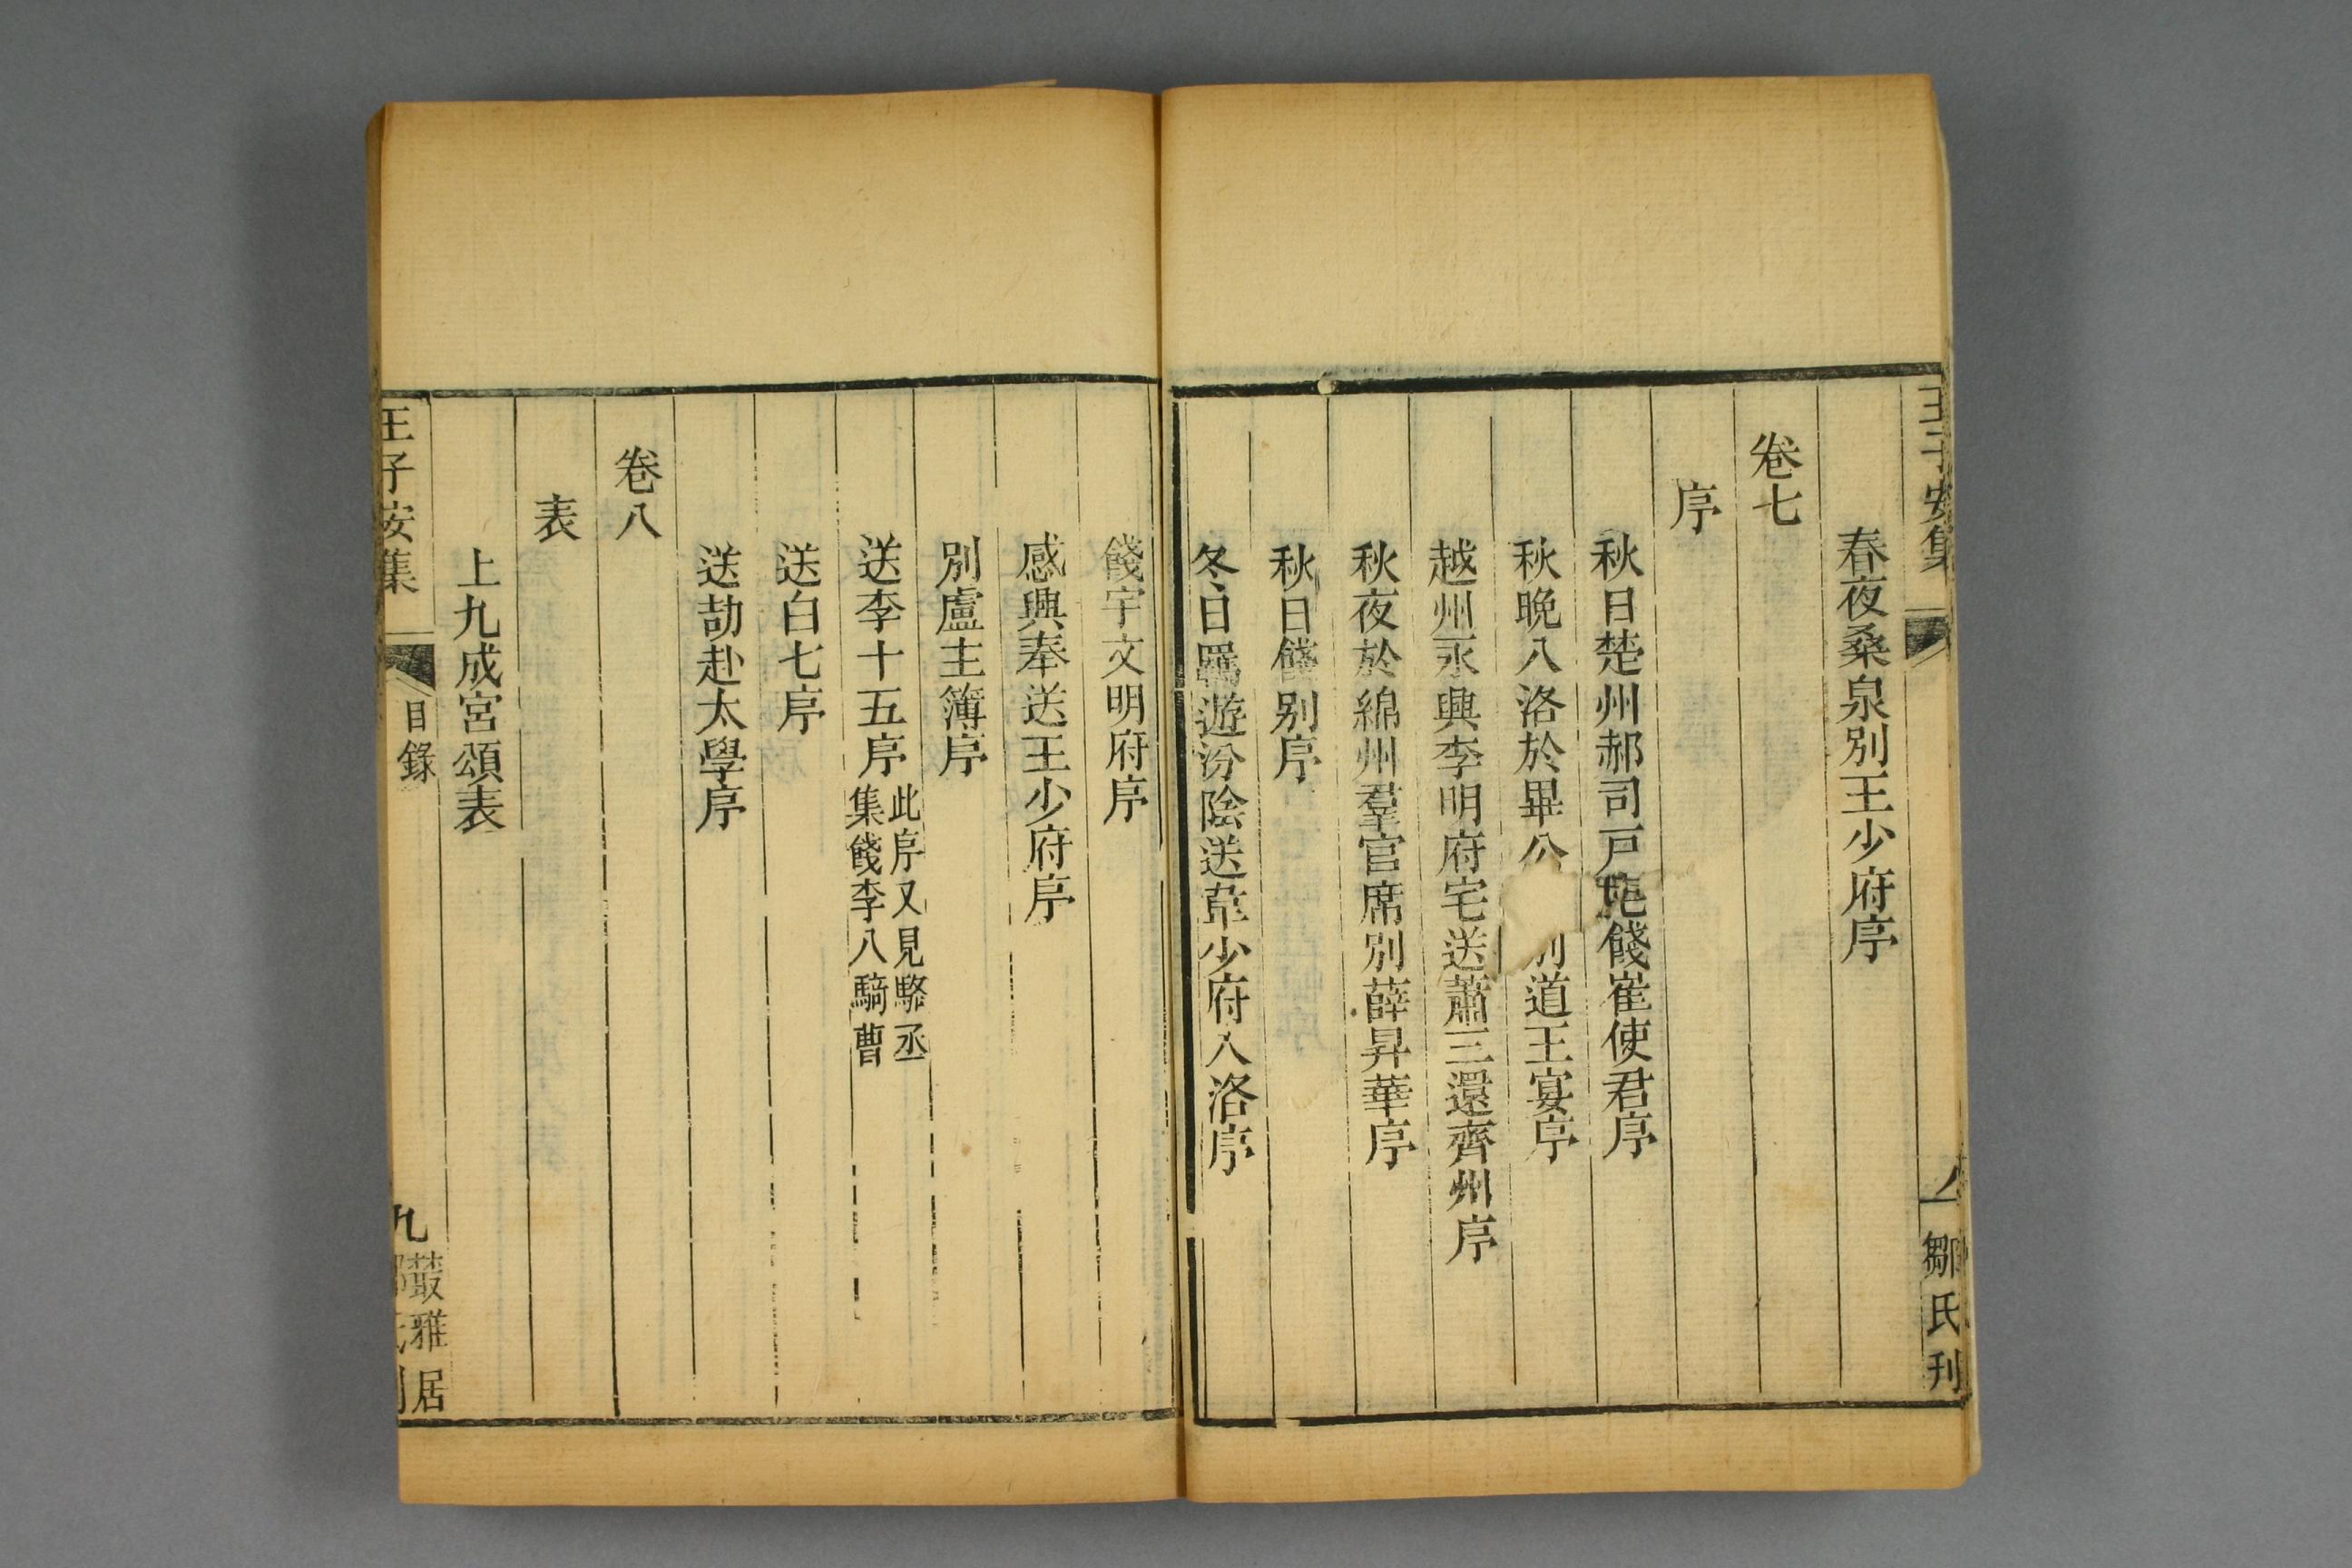 王子安集
鄒氏刊
春夜桑泉別王少府序
卷七
序
秋日楚州郝司戸宅餞崔使君序
秋晩入洛於畢公別道王宴序
越州永興李明府宅送蕭三還齊州序
秋夜於綿州羣官席別薛昇華序
秋日餞别序
冬日羈遊汾陰送韋少府入洛序
餞宇文明府序
感興奉送王少府序
別盧主簿序
送李十五序此序又見駱丞
集餞李八騎曹
送白七序
送劼赴太學序
卷八
表
上九成宮頌表
王子安集
目錄
九
叢雅居